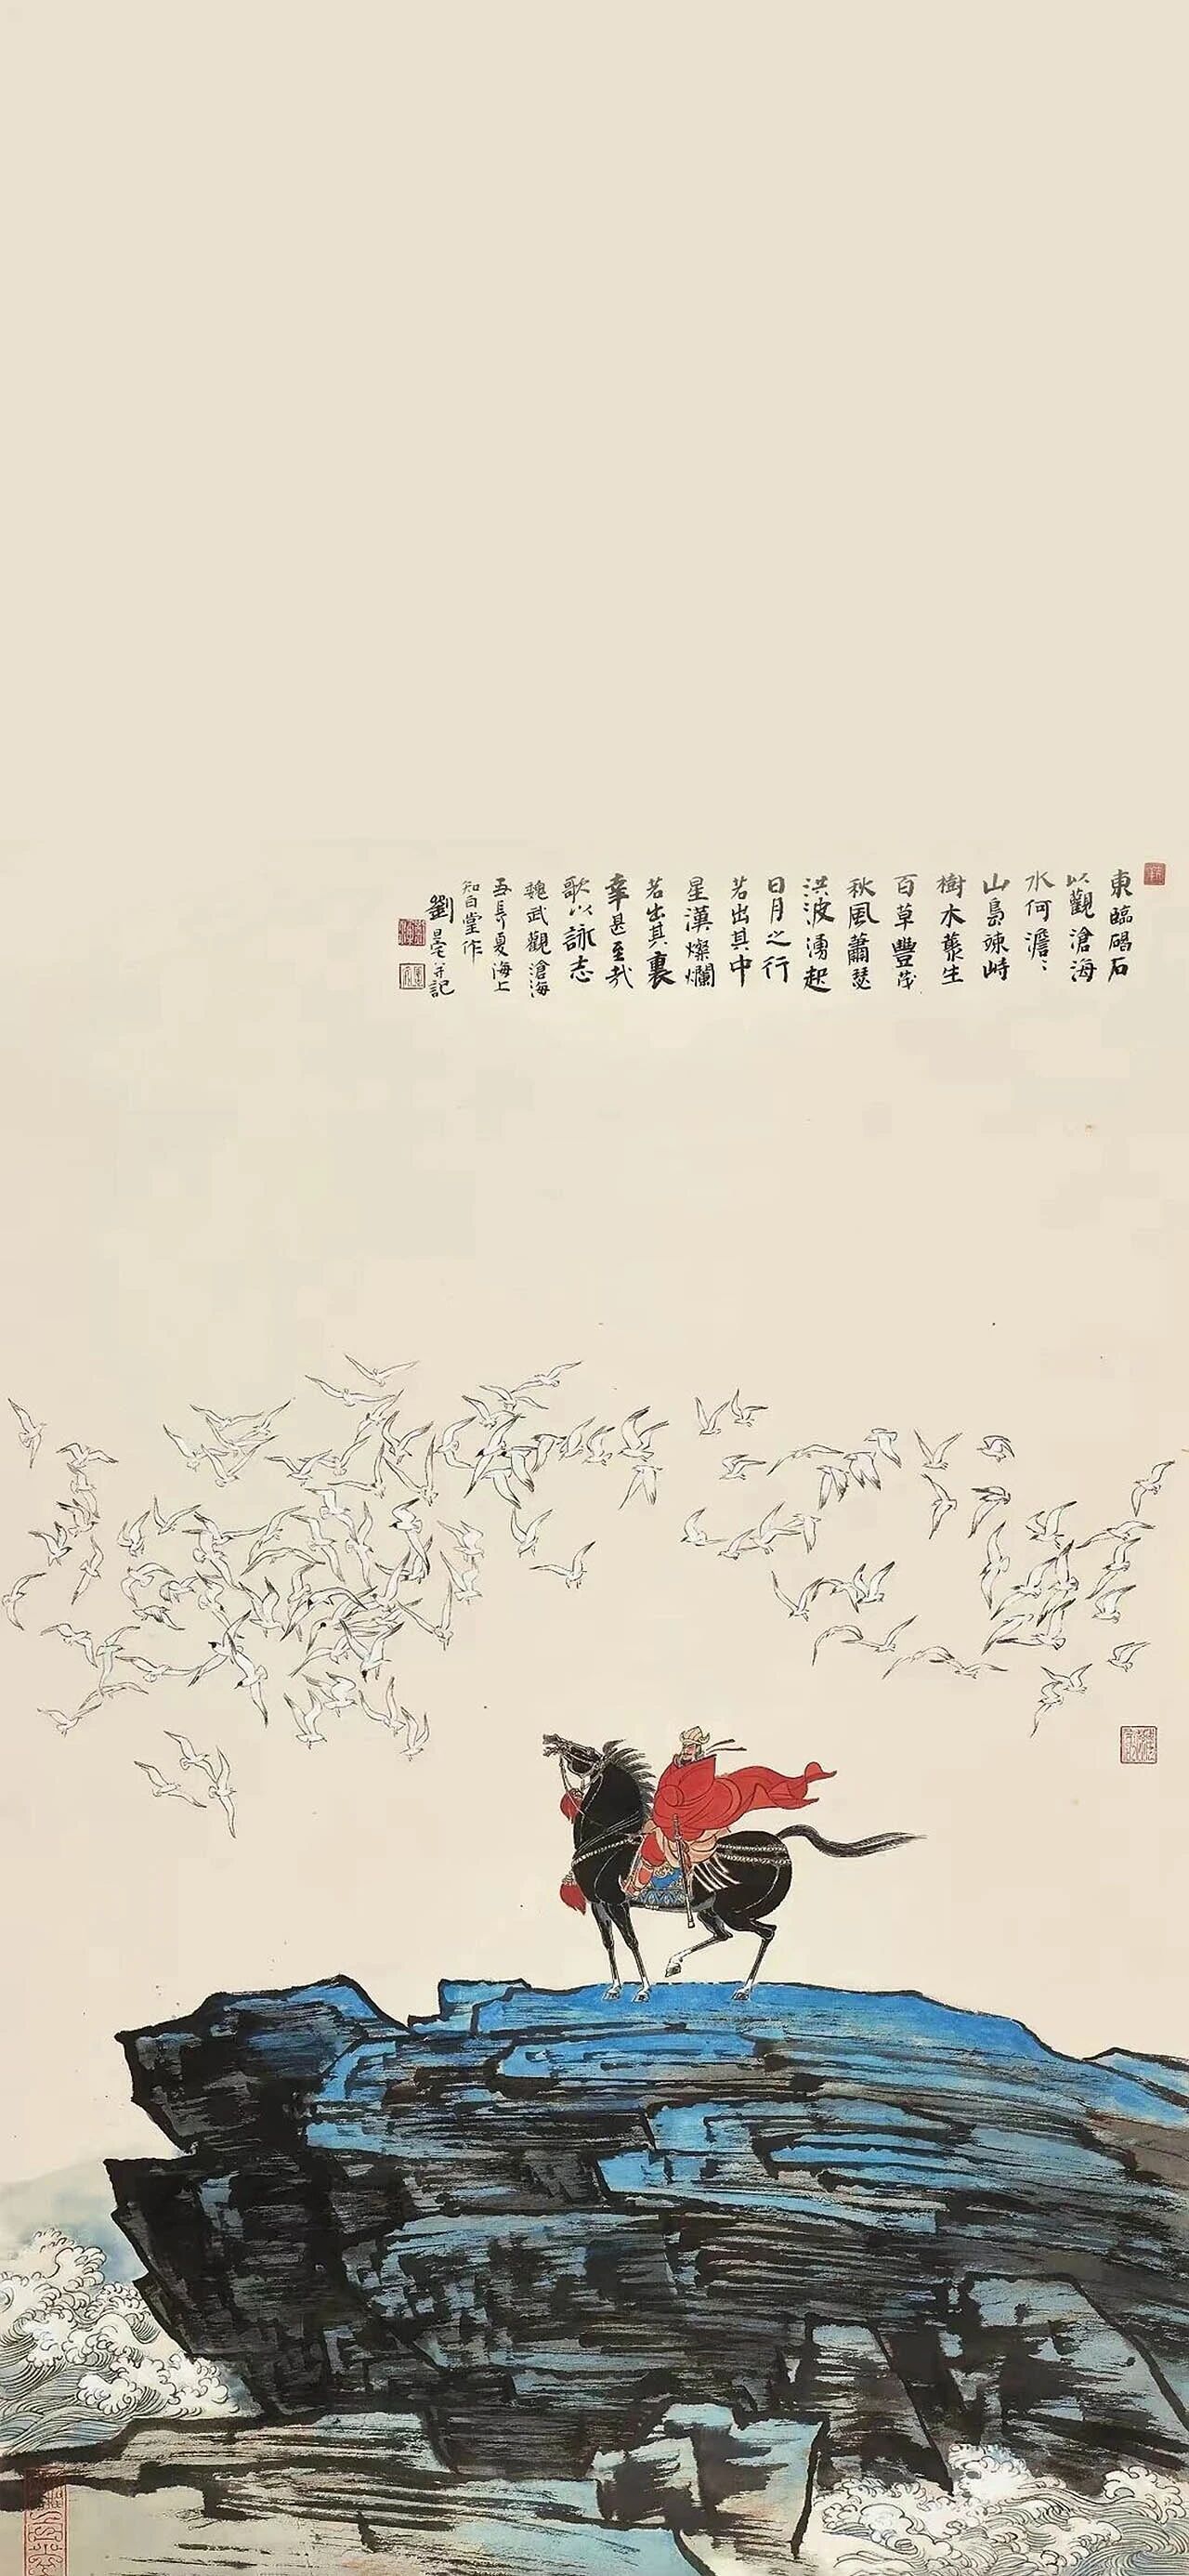 東臨碣石
以觀滄海
水何澹〻
山島竦峙
樹木叢生
百草豐茂
秋風蕭瑟
洪波湧起
日月之行
若出其中
星漢燦爛
若出其裏
幸甚至哉
歌以詠志
魏武觀滄海
長夏海上
知白堂作
劉旦宅并記